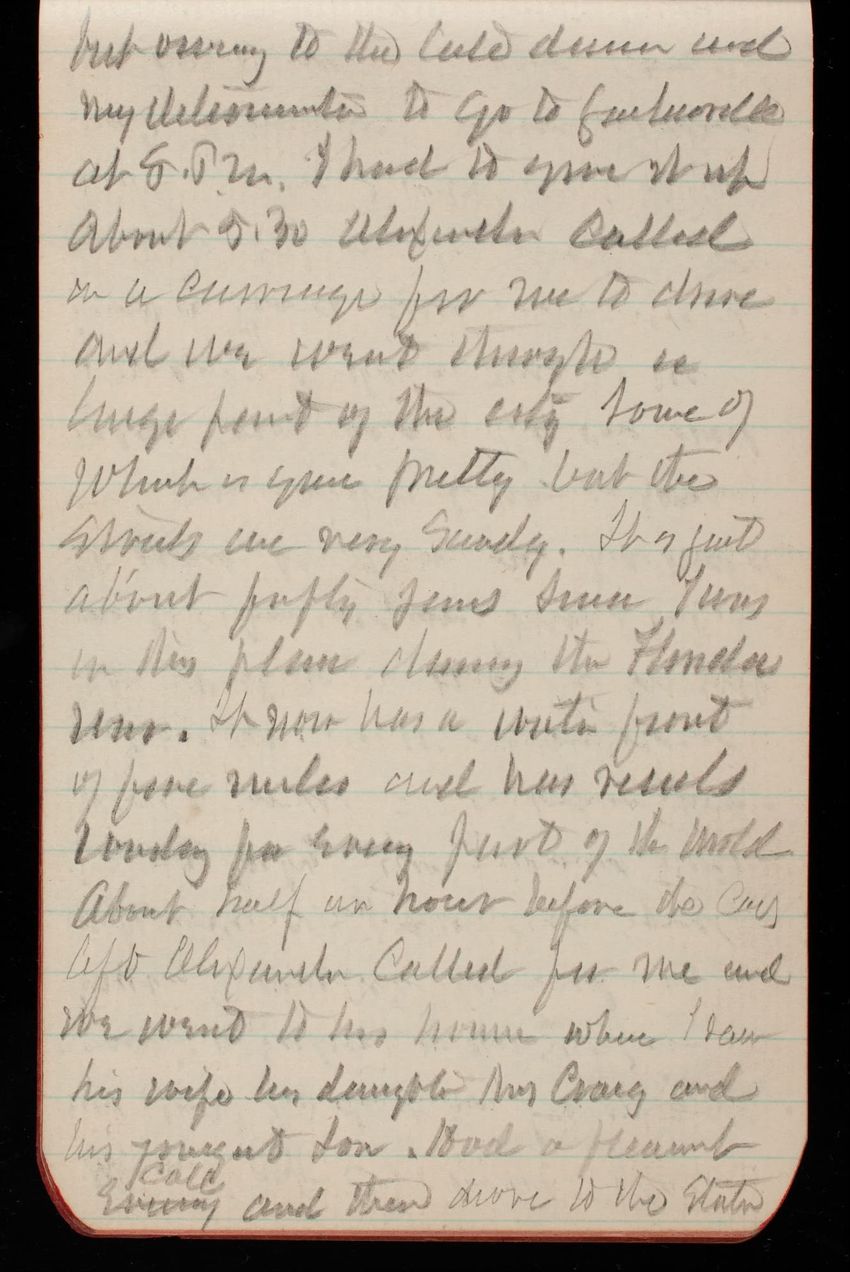 but owing to the late dinner and
my determination to go to
at 8 P.m. I had to give it up
About 5.30 Alexander Called
in a carriage for me to drive
and we went through a
large part of the city Some of
Which is quite pretty but the
Streets are very Sandy. It is just
about fifty years since I was
in this place during the Florida
war. It now has a water front
of five miles and has vessels
loading for every part of the world
About half an hour before the Cars
left Alexander Called for me and
we went to his home where I saw
his wife his daughter Mrs Craig and
his youngest Son. Had a pleasant
Call
Evening and then drove to the Station